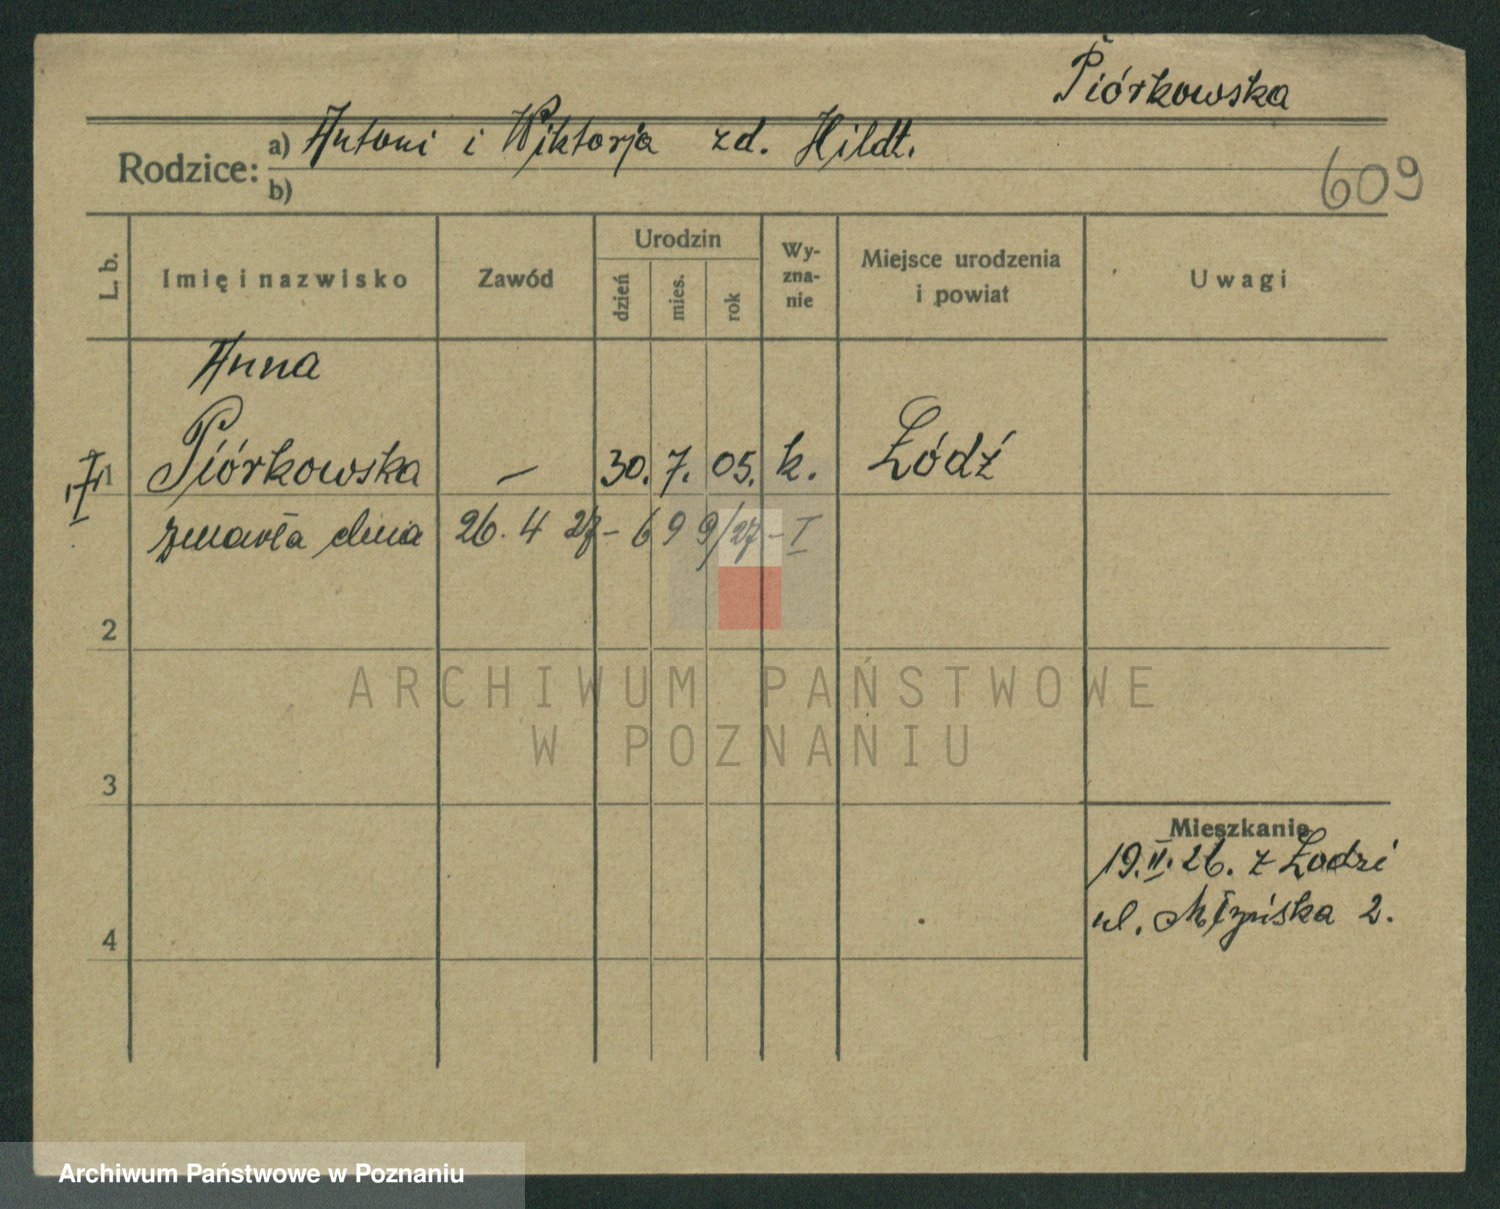 Piórkowska
Rodzice: a) Antoni i Wiktorja zd. Hildt.
b)
609
L. b.
Imię i nazwisko
Zawód
Urodzin
dzień
mies.
rok
Wy-
zna-
nie
Miejsce urodzenia
i powiat
Uwagi
Anna
1 Piórkowska — 30. 7. 05. k. Łódź
zmarła dnia 26. 4 27 - 699/27 - I
2
3
4
Mieszkanie
19.II.26. z Łodzi
ul. 2.
ARCHIWUM PAŃSTWOWE
W POZNANIU
Archiwum Państwowe w Poznaniu